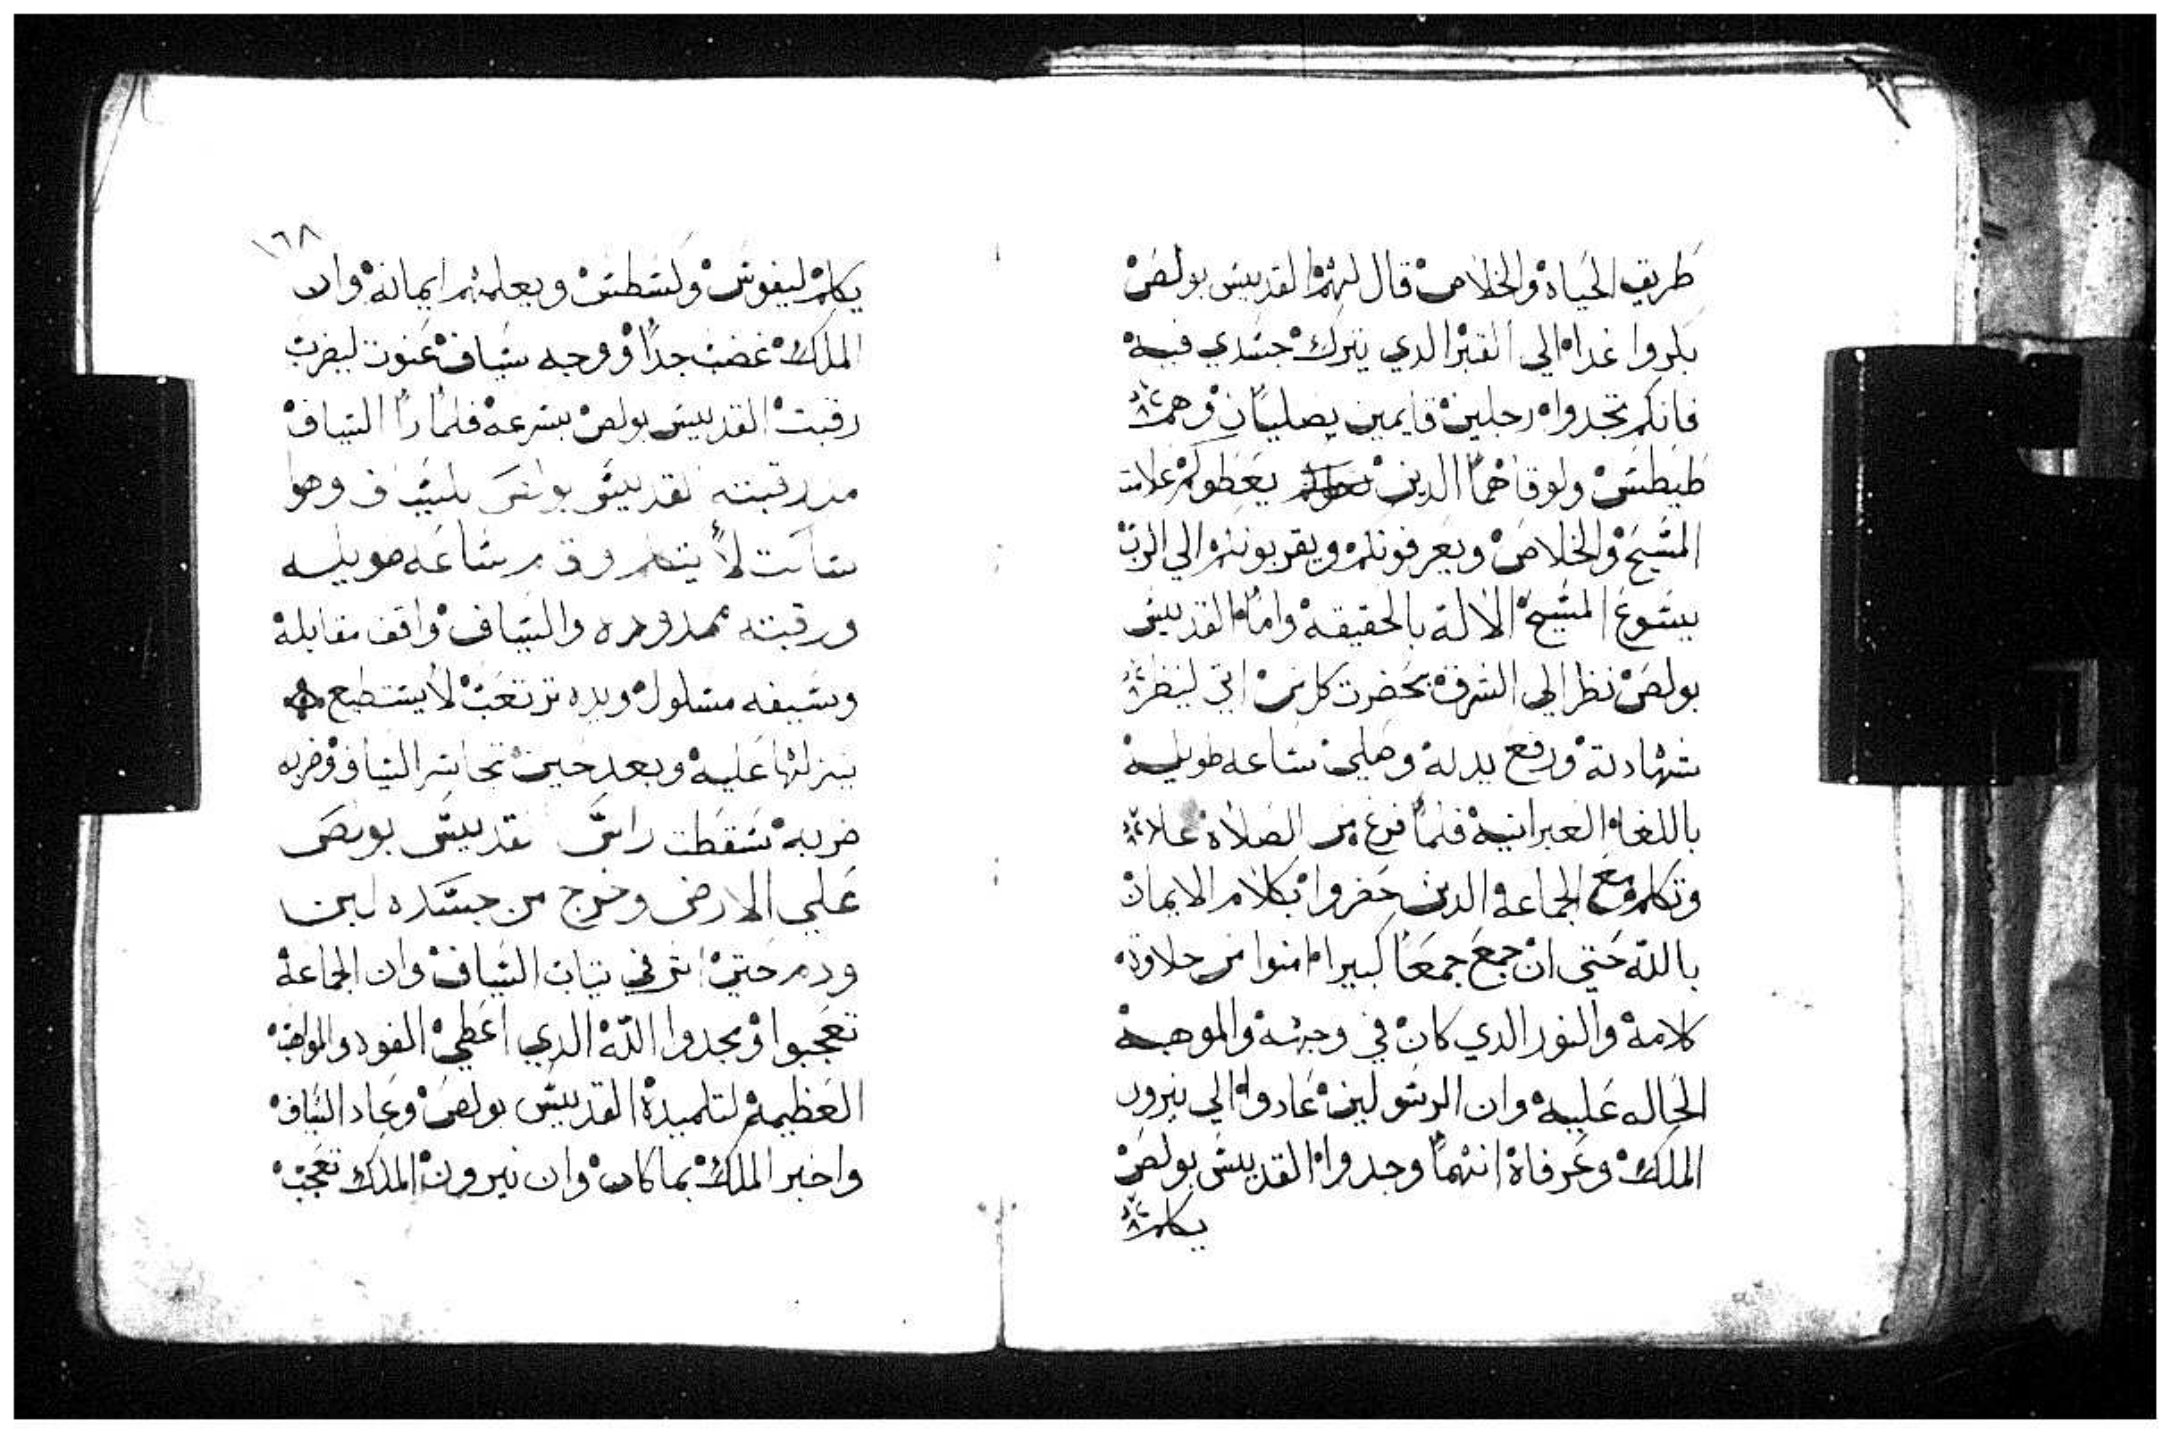 طريق الحياة والخلاص قال لهم القديس بولص
بكروا غدا الي القبر الدي يترك جسدي فيه
فانكم تجدوا رجلين قايمين يصليان وهم
طيطس ولوقا هما الدين يعطوكم علامت
المسيح والخلاص ويعرفونكم ويقربونكم الي الرب
يسوع المسيح الالة بالحقيقة واما القديس
بولص نظر الي الشرق بحضرت كلمن اتي لينظر
شهادتة ورفع يدية وصلي ساعه طويلة
باللغاه العبرانية فلما فرغ من الصلاة
وتكلم مع الجماعة الدين حضروا بكلام الايمان
بالله حتي ان جمع جمعا كبيرا امنوا من حلاوة
كلامة والنور الدي كان في وجهه والموهبة
الحاله عليه وان الرسولين عادوا الي نيرون
الملك وعرفاة انهما وجدوا القديس بولص
يكلم
١٦٨
يكلم ليغوس ولسطس ويعلمهم ايمانة وان
الملك غضب جدا ووجه سياف عنوت ليضرب
رقبت القديس بولص بسرعة فلما را السياف
مدد رقبته القديس بولص للسياف وهوا
ساكت لا يتكلم وقام ساعة طويلة
ورقبته ممدوده والسياف واقف مقابلة
وسيفه مسلول ويده ترتعب لا يستطيع
ينزلها عليه وبعد حين تجاسر السياف وضربه
ضربه سقطت راس القديس بولص
علي الارض وخرج من جسده لبن
ودم حتي اثر في تياب السياف وان الجماعة
تعجبوا ومجدوا الله الدي اعطي القوه والمواهب
العظيمة لتلميدة القديس بولص وعاد السياف
واخبر الملك بما كان وان نيرون الملك تعجب